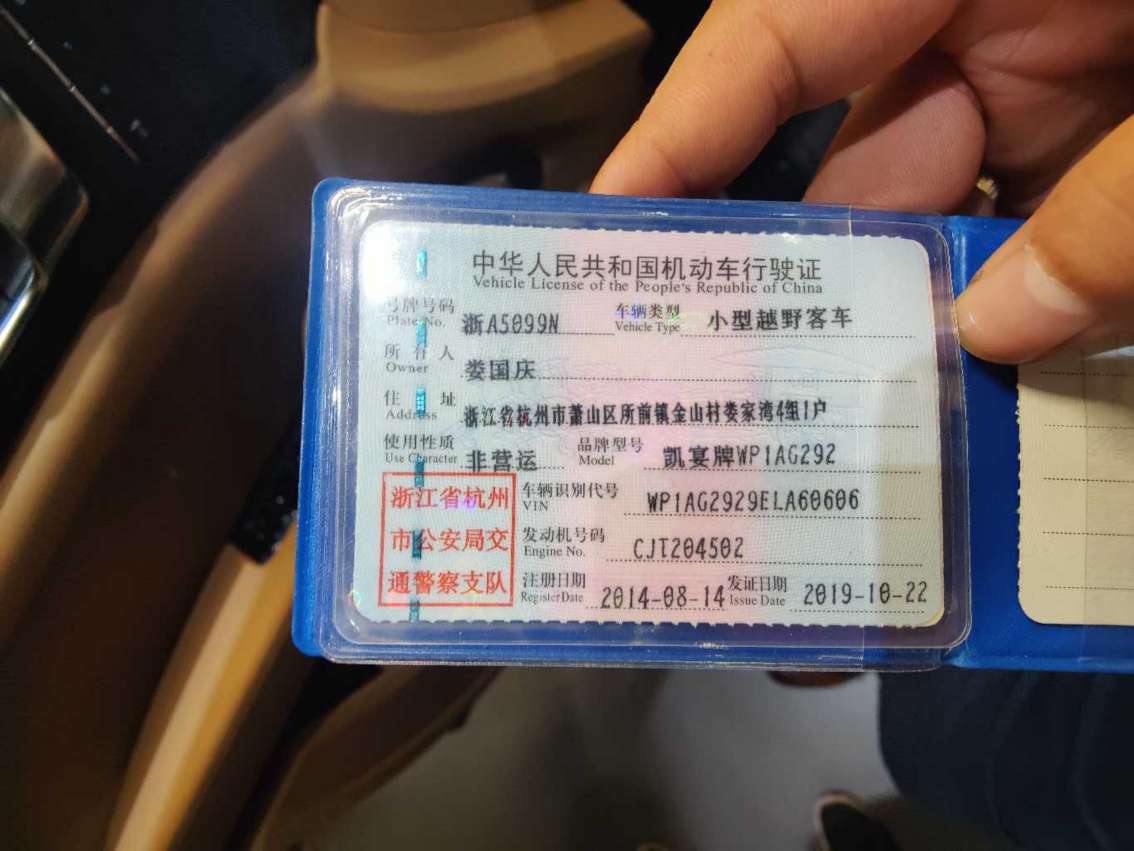 中华人民共和国机动车行驶证
Vehicle License of the People's Republic of China
号牌号码 浙A5099N 车辆类型 小型越野客车
Plate No. Vehicle Type
所有人 娄国庆
Owner
住址 浙江省杭州市萧山区所前镇金山村娄家湾4组1户
Address
使用性质 非营运 品牌型号 凯宴牌WP1AG292
Use Character Model
浙江省杭州
市公安局交
通警察支队
车辆识别代号 WP1AG2929ELA60606
VIN
发动机号码 CJT204502
Engine No.
注册日期 2014-08-14 发证日期 2019-10-22
Register Date Issue Date